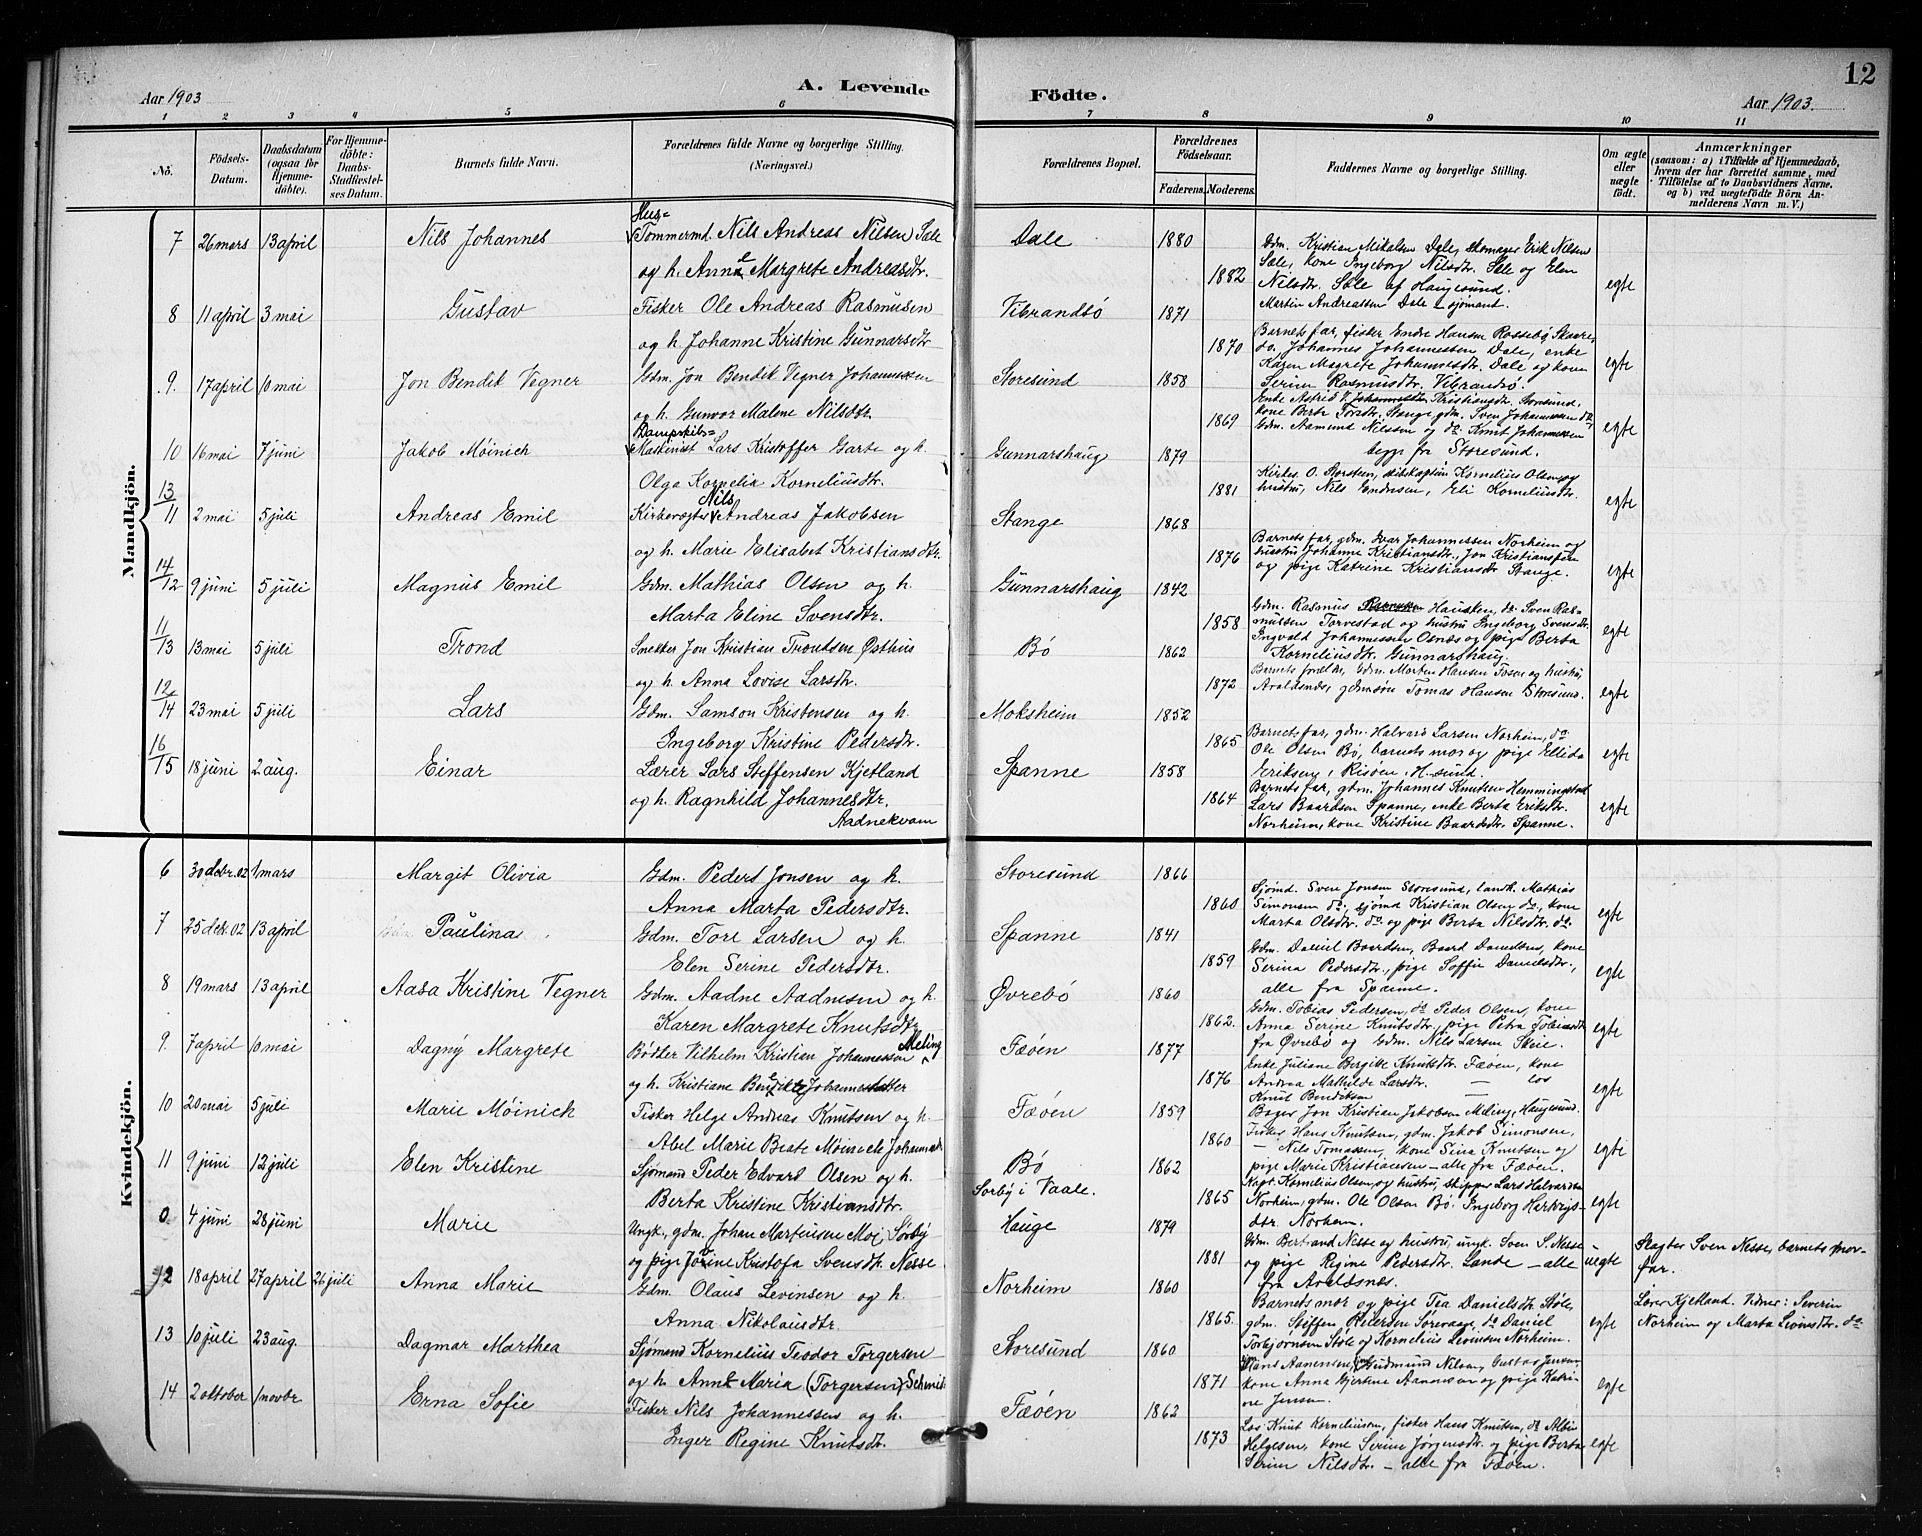 12
Aar 1903
A. Levende
Födte.
Aar 1903.
1 2 3 4 5 6 7 8 9 10 11
No.
Födsels-Datum.
Daabsdatum (ogsaa for Hjemme-döbte).
For Hjemme-döbte: Daabs-Stadfæstel-ses Datum.
Barnets fulde Navn.
Forældrenes fulde Navne og borgerlige Stilling. (Næringsvei.)
Forældrenes Bopæl.
Forældrenes Födselsaar.
Faderens. Moderens.
Faddernes Navne og borgerlige Stilling.
Om ægte eller uægte födt.
Anmærkninger
(saasom: a) i Tilfælde af Hjemmedaab, hvem der har forrettet samme, med Tilföielse af to Daabsvidners Navne. og b) ved uægtefödte Börn Anmelderens Navn m. V.)
Mandkjön.
Hus=
7 26 mars 13 april Nils Johannes Tømmermd. Nils Andreas Nilsen Sæle Dale 1880 Gdm. Kristian Mikalsen Dale, skomager Erik Nilsen
og h. Anne Margrete Andreasdtr. 1882 Sæle, kone Ingeborg Nilsdtr. Sæle og Elen egte
Nilsdtr. Sæle af Haugesund.
Martin Andreassen Dale, sjømand.
8 11 april 3 mai Gustav Fisker Ole Andreas Rasmusen Vibrandsø 1871
og h. Johanne Kristine Gunnarsdtr 1870 Barnets far, fisker Endre Hansen Rossebø Skaare, egte
do. Johannes Johannessen Dale, enke
Karen Magrete Johannesdtr. Dale og kone
Serine Rasmusdtr. Vibrandsø.
9. 17 april 10 mai Jon Bendik Vegner Gdm. Jon Bendik Vegner Johannessen Storesund 1858
og h. Gunvor Malene Nilsdtr. 1869 Enke Astrid Kristiansdtr. Storesund, egte
kone Berta Tordtr. Stange, gdm. Sven Johannessen do
Gdm. Aamund Nilssen og do. Knut Johannessen
begge fra Storesund.
Dampskibs=
10 16 mai 7 juni Jakob Møinich Maskinist Lars Kristoffer Garte og h. Gunnarshaug 1879
Olga Kornelia Korneliusdtr. 1881 Kirkes. O. Storsteen, skibskaptein Kornelius Olsen og egte
hustru, Nils Endresen, Eli Korneliusdtr.
13/11 2 mai 5 juli Andreas Emil Kirkeværge Nils Andreas Jakobsen Stange 1868
og h. Marie Elisabet Kristiansdtr. 1876 Barnets far, gdm. Ivar Johannessen Norheim og egte
hustru Johanne Kristiansdtr., Jon Kristiansen
og pige Katrine Kristiansdtr Stange.
14/12 9 juni 5 juli Magnus Emil Gdm. Mathias Olsen og h. Gunnarshaug 1842
Marta Eline Svensdtr. 1858 Gdm. Rasmus Hausken, do. Sven Ras- egte
mussen Torvestad og hustru Ingeborg Svensdtr.
Ingvald Johannessen Osnæs og pige Berta
Korneliusdtr. Gunnarshaug
11/13 13 mai 5 juli Trond Snekker Jon Kristian Trondsen Østhus Bø 1862
og h. Anna Lovise Larsdtr. 1872 Barnets forældre, Gdm. Morten Hansen Fosen og hustru, egte
Avaldsnes, gdmsøn Tomas Hansen Storesund.
12/14 23 mai 5 juli Lars Gdm. Samson Kristensen og h. Moksheim 1852
Ingeborg Kristine Pedersdtr. 1865 Barnets far, gdm. Halvard Larsen Norheim, do egte
Ole Olsen Bø, barnets mor og pige Ellida
Eriksen, Risøen, H-sund.
16/15 18 juni 2 aug. Einar Lærer Lars Steffensen Kjetland Spanne 1858
og h. Ragnhild Johannesdtr. Aadnekvam 1864 Barnets far, gdm. Johannes Knutsen Hemmingstad egte
Lars Baardsen Spanne, enke Berta Eriksdtr.
Norheim, kone Kristine Baardsdtr. Spanne.
Kvindekjön.
6 30 debr. 02 1 mars Margit Olivia Gdm. Peder Jonsen og h. Storesund 1866
Anna Marta Pedersdtr. 1860 Sjømd. Sven Jonsen Storesund, landh. Mathias egte
Simonsen do., sjømd Kristian Olsen do., kone
Marta Olsdtr. do. og pige Berta Nilsdtr. do.
7 25 dek. 02 13 april Paulina Gdm. Tore Larsen og h. Spanne 1841
Elen Serine Pedersdtr. 1859 Gdm. Daniel Baardsen, Baard Danielsen, kone egte
Serina Pedersdtr., pige Soffie Danielsdtr.,
alle fra Spanne.
8 19 mars 13 april Aasa Kristine Vegner Gdm. Aadne Aadnesen og h. Øvrebø 1860
Karen Margrete Knutsdtr 1862. Gdm. Tobias Pedersen, do Peder Olsen, kone egte
Anna Serine Knutsdtr., pige Petra Tobiasdtr
fra Øvrebø og Gdm. Nils Larsen Skeie.
9. 7 april 10 mai Dagny Margrete Bødker Vilhelm Kristian Johannessen Meling Fæøen 1877
og h. Kristiane Bendikte Johannes 1876 Enke Juliane Bergitte Knutsdtr. Fæøen, kone egte
Andrea Mathilde Larsdtr. — los
Knut Bendiksen
Bager Jon Kristian Jakobsen Meling, Haugesund.
10 20 mai 5 juli Marie Møinich Fisker Helge Andreas Knutsen og h. Fæøen 1859
Abel Marie Beate Møinich Johannesdt. 1860 Fisker Hans Knutsen, gdm. Jakob Simonsen, egte
— Nils Tomassen, kone Sina Knutsen og
pige Marie Kristiansen — alle fra Fæøen.
11 9 juni 12 juli Elen Kristine Sjømand Peder Edvart Olsen og h. Bø 1862
Berta Kristine Kristiansdtr. 1865 Kapt. Kornelius Olsen og hustru, skipper Lars Halvardsen egte
Norheim, gdm. Ole Olsen Bø. Ingeborg Hartvigs-
dtr. Norheim.
0 4 juni 28 juni Marie Ungk., gdm. Johan Martinsen Moe, Sørby Sørby i Vaale. Hauge 1879
og pige Jorine Kristofa Svensdtr. Nesse 1881 Gdm. Bertrand Nesse og hustru, ungk. Sven S. Nesse uegte Slagter Sven Nesse, barnets mor-
og pige Regine Pedersdtr. Lande — alle far.
fra Avaldsnes.
12 18 april 27 april 26 juli Anna Marie Gdm. Olaus Levinsen og h. Norheim 1860
Anna Nikolausdtr. 1865. Barnets mor og pige Tea Danielsdtr. Støle, egte Lærer Kjetland. Vidner: Severin
gdm. Steffen Pedersen Sørevaag, do Daniel Norheim og Marta Levinsdtr. do
Torbjørnsen Støle og Kornelius Levinsen Norheim.
13 10 juli 23 aug. Dagmar Marthea Sjømand Kornelius Teodor Torgersen Storesund 1860
og h. Anne Maria (Torgersen) Schmidt 1871 Hans Aanensen, Gudmund Nilsen, Gustav Jensen, egte
kone Anna Gjertine Aanensen og pige Katri-
ne Jensen.
14 2 oktober 1 novbr Erna Sofie Fisker Nils Johannessen og h. Fæøen 1862
Inger Regine Knutsdtr. 1873 Los Knut Korneliusen, fisker Hans Knutsen, do Albin egte
Helgesen, kone Serine Jørgensdtr. og pige Berta
Serine Nilsdtr. — alle fra Fæøen.